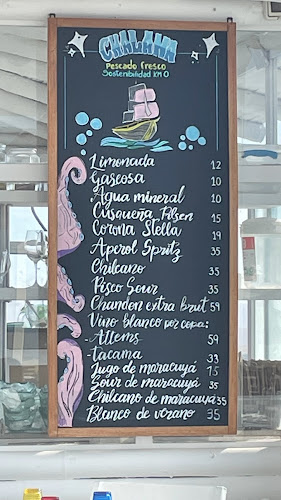 CHALANA
Pescado fresco
Sostenibilidad KM 0
Limonada 12
Gaseosa 10
Agua mineral 10
Cusqueña, Pilsen 15
Corona Stella 19
Aperol Spritz 35
Chilcano 35
Pisco Sour 35
Chandon extra brut 59
Vino blanco por copa:
-Allems 59
-tacama 33
Jugo de maracuyá 15
Sour de maracuyá 35
Chilcano de maracuyá 35
Blanco de verano 35